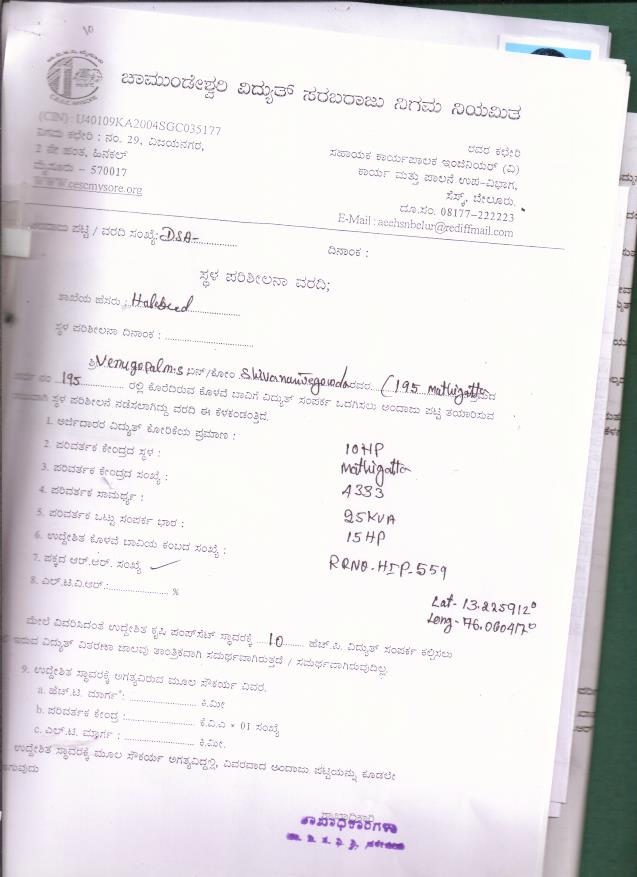 ಚಾಮುಂಡೇಶ್ವರಿ ವಿದ್ಯುತ್ ಸರಬರಾಜು ನಿಗಮ ನಿಯಮಿತ
(CIN) : U40109KA2004SGC035177
ನಿಗಮ ಕಛೇರಿ : ನಂ. 29, ವಿಜಯನಗರ,
2 ನೇ ಹಂತ, ಹಿನಕಲ್
ಮೈಸೂರು – 570017
www.cescmysore.org
ರವರ ಕಛೇರಿ
ಸಹಾಯಕ ಕಾರ್ಯಪಾಲಕ ಇಂಜಿನಿಯರ್ (ವಿ)
ಕಾರ್ಯ ಮತ್ತು ಪಾಲನೆ ಉಪ-ವಿಭಾಗ,
ಸೆಸ್ಕ್, ಬೇಲೂರು.
ದೂ.ಸಂ. 08177-222223
E-Mail : aeehsnbelur@rediffmail.com
ಅಂದಾಜು ಪಟ್ಟಿ / ವರದಿ ಸಂಖ್ಯೆ: DSA-
ದಿನಾಂಕ :
ಸ್ಥಳ ಪರಿಶೀಲನಾ ವರದಿ;
ಶಾಖೆಯ ಹೆಸರು : Halebeed
ಸ್ಥಳ ಪರಿಶೀಲನಾ ದಿನಾಂಕ : ..............................
ಶ್ರೀ Venugopal m.s ಬಿನ್/ಕೋಂ Shivananjegowda ರವರ (195 Mathigatta
195 ರಲ್ಲಿ ಕೊರೆದಿರುವ ಕೊಳವೆ ಬಾವಿಗೆ ವಿದ್ಯುತ್ ಸಂಪರ್ಕ ಒದಗಿಸಲು ಅಂದಾಜು ಪಟ್ಟಿ ತಯಾರಿಸುವ
ಸ್ಥಳ ಪರಿಶೀಲನೆ ನಡೆಸಲಾಗಿದ್ದು ವರದಿ ಈ ಕೆಳಕಂಡಂತಿದೆ.
1. ಅರ್ಜಿದಾರರ ವಿದ್ಯುತ್ ಕೋರಿಕೆಯ ಪ್ರಮಾಣ : 10 HP
2. ಪರಿವರ್ತಕ ಕೇಂದ್ರದ ಸ್ಥಳ : Mathigatta
3. ಪರಿವರ್ತಕ ಕೇಂದ್ರದ ಸಂಖ್ಯೆ : 4333
4. ಪರಿವರ್ತಕ ಸಾಮರ್ಥ್ಯ : 25 KVA
5. ಪರಿವರ್ತಕ ಒಟ್ಟು ಸಂಪರ್ಕ ಭಾರ : 15 HP
6. ಉದ್ದೇಶಿತ ಕೊಳವೆ ಬಾವಿಯ ಕಂಬದ ಸಂಖ್ಯೆ :
7. ಪಕ್ಕದ ಆರ್.ಆರ್. ಸಂಖ್ಯೆ RRNO-HIP-559
8. ಎಲ್.ಟಿ.ವಿ.ಆರ್.:...................... %
Lat- 13.225912°
Long- 76.060417°
ಮೇಲೆ ವಿವರಿಸಿದಂತೆ ಉದ್ದೇಶಿತ ಕೃಷಿ ಪಂಪ್‌ಸೆಟ್ ಸ್ಥಾವರಕ್ಕೆ 10 ಹೆಚ್.ಪಿ. ವಿದ್ಯುತ್ ಸಂಪರ್ಕ ಕಲ್ಪಿಸಲು
ಇರುವ ವಿದ್ಯುತ್ ವಿತರಣಾ ಜಾಲವು ತಾಂತ್ರಿಕವಾಗಿ ಸಮರ್ಥವಾಗಿರುತ್ತದೆ / ಸಮರ್ಥವಾಗಿರುವುದಿಲ್ಲ.
9. ಉದ್ದೇಶಿತ ಸ್ಥಾವರಕ್ಕೆ ಅಗತ್ಯವಿರುವ ಮೂಲ ಸೌಕರ್ಯ ವಿವರ.
a. ಹೆಚ್.ಟಿ. ಮಾರ್ಗ : ...................... ಕಿ.ಮೀ
b. ಪರಿವರ್ತಕ ಕೇಂದ್ರ : ...................... ಕೆ.ವಿ.ಎ × 01 ಸಂಖ್ಯೆ
c. ಎಲ್.ಟಿ. ಮಾರ್ಗ : ...................... ಕಿ.ಮೀ.
ಉದ್ದೇಶಿತ ಸ್ಥಾವರಕ್ಕೆ ಮೂಲ ಸೌಕರ್ಯ ಅಗತ್ಯವಿದ್ದಲ್ಲಿ, ವಿವರವಾದ ಅಂದಾಜು ಪಟ್ಟಿಯನ್ನು ಕೂಡಲೇ
ಶಾಖಾಧಿಕಾರಿ
ಶಾಖಾಧಿಕಾರಿಗಳು